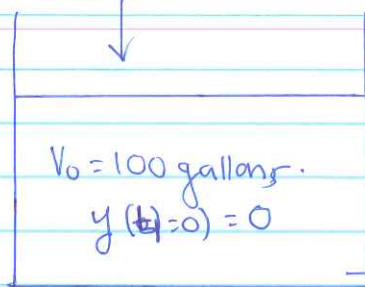 V₀ = 100 gallons.
y (t=0) = 0